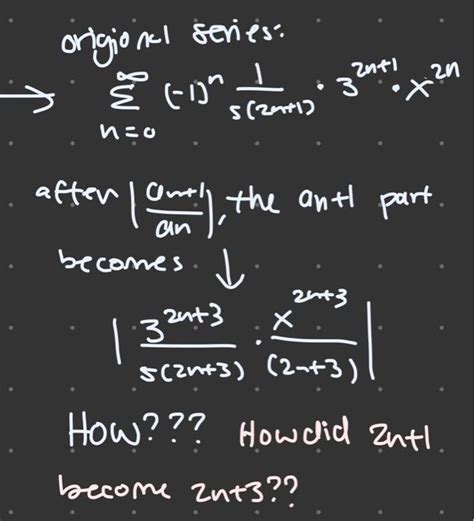 origional series:
→ ∞ Σ n=0 (-1)^n 1/5(2n+1) · 3^2n+1 · x^2n
after |an+1/an|, the an+1 part
becomes ↓
|3^2n+3/5(2n+3) · x^2n+3/(2n+3)|
How??? How did 2n+1
become 2n+3??